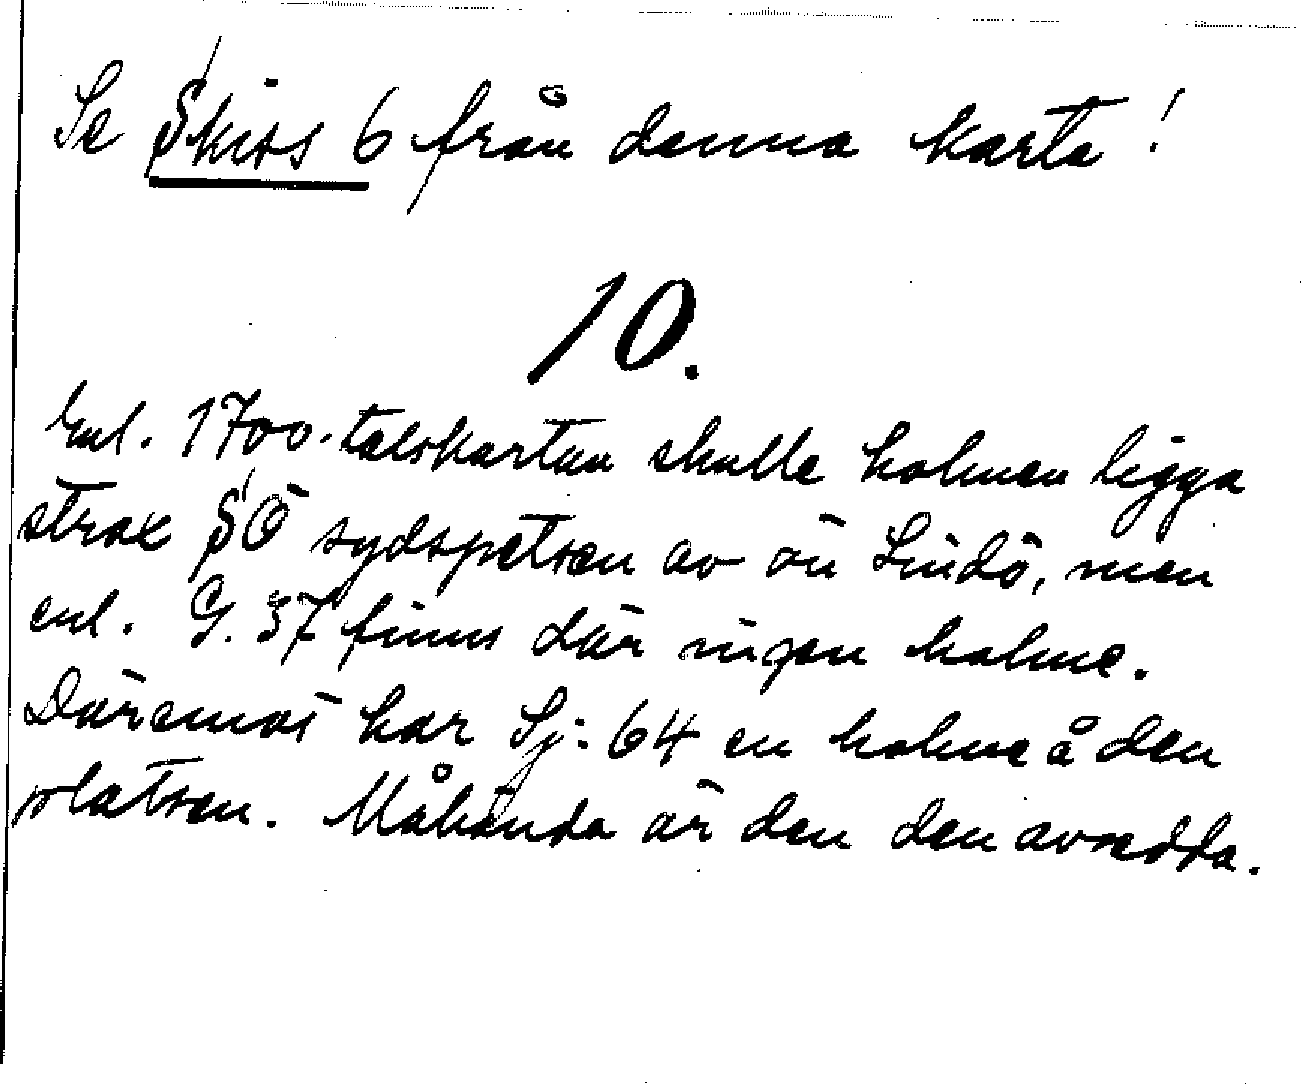 Se Skiss 6 från denna karta!
10.
Enl. 1700-talskartan skulle holmen ligga
strax SÖ sydspetsen av ön Lindö, men
enl. G. 37 finns där ingen holme.
Däremot har Sj. 64 en holme å den
platsen. Måhända är den den avsedda.